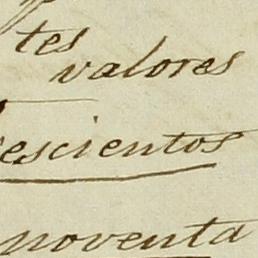 tes
valores
escientos
noventa